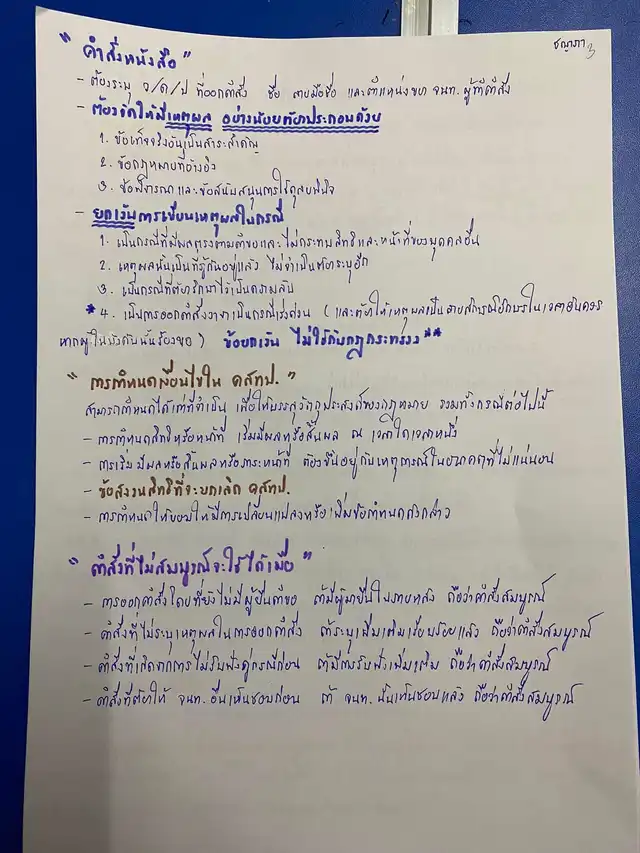 ชญาภา 3
" คำสั่งหนังสือ "
- ต้องระบุ ว/ด/ป ที่ออกคำสั่ง ชื่อ ลายมือชื่อ และตำแหน่งของ จนท. ผู้ทำคำสั่ง
- ต้องจัดให้มีเหตุผล อย่างน้อยต้องประกอบด้วย
1. ข้อเท็จจริงอันเป็นสาระสำคัญ
2. ข้อกฎหมายที่อ้างอิง
3. ข้อพิจารณาและข้อสนับสนุนการใช้ดุลยพินิจ
- ยกเว้นการเขียนเหตุผลในกรณี
1. เป็นกรณีที่มีผลตรงตามคำขอและไม่กระทบสิทธิและหน้าที่ของบุคคลอื่น
2. เหตุผลนั้นเป็นที่รู้กันอยู่แล้ว ไม่จำเป็นต้องระบุอีก
3. เป็นกรณีที่ต้องรักษาไว้เป็นความลับ
* 4. เป็นการออกคำสั่งวาจาเป็นกรณีเร่งด่วน ( และต้องให้เหตุผลเป็นลายลักษณ์อักษรในเวลาอันควร
หากผู้ในบังคับนั้นร้องขอ ) ข้อยกเว้น ไม่ใช้กับกฎกระทรวง **
" การกำหนดเงื่อนไขใน คสทป. "
สามารถกำหนดได้เท่าที่จำเป็น เพื่อให้บรรลุวัตถุประสงค์ของกฎหมาย รวมทั้งกรณีต่อไปนี้
- การกำหนดสิทธิหรือหน้าที่ เริ่มมีผลหรือสิ้นผล ณ เวลาใดเวลาหนึ่ง
- การเริ่มมีผลหรือสิ้นผลหรือภาระหน้าที่ ต้องขึ้นอยู่กับเหตุการณ์ในอนาคตที่ไม่แน่นอน
- ข้อสงวนสิทธิที่จะยกเลิก คสทป.
- การกำหนดให้ยอมให้มีการเปลี่ยนแปลงหรือเพิ่มข้อกำหนดดังกล่าว
" คำสั่งที่ไม่สมบูรณ์จะใช้ได้เมื่อ "
- การออกคำสั่งโดยที่ยังไม่มีผู้ยื่นคำขอ ถ้ามีผู้มายื่นในภายหลัง ถือว่าคำสั่งสมบูรณ์
- คำสั่งที่ไม่ระบุเหตุผลในการออกคำสั่ง ถ้าระบุเพิ่มเติมเรียบร้อยแล้ว ถือว่าคำสั่งสมบูรณ์
- คำสั่งที่เกิดจากการไม่รับฟังคู่กรณีก่อน ถ้ามีการรับฟังเพิ่มเติม ถือว่าคำสั่งสมบูรณ์
- คำสั่งที่ต้องให้ จนท. อื่นเห็นชอบก่อน ถ้า จนท. นั้นเห็นชอบแล้ว ถือว่าคำสั่งสมบูรณ์